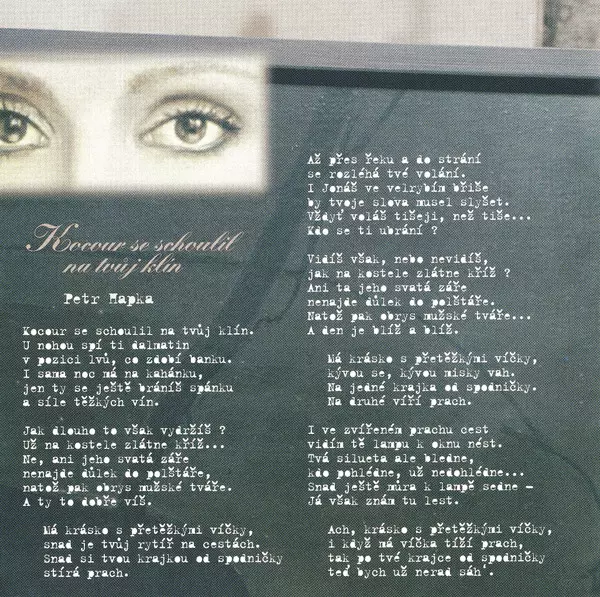 Kocour se schoulil
na tvůj klín
Petr Hapka
Kocour se schoulil na tvůj klín.
U nohou spí ti dalmatin
v pozici lvů, co zdobí banku.
I sama noc má na kahánku,
jen ty se ještě bráníš spánku
a síle těžkých vín.
Jak dlouho to však vydržíš ?
Už na kostele zlátne kříž...
Ne, ani jeho svatá záře
nenajde důlek do polštáře,
natož pak obrys mužské tváře.
A ty to dobře víš.
Má krásko s přetěžkými víčky,
snad je tvůj rytíř na cestách.
Snad si tvou krajkou od spodničky
stírá prach.
Až přes řeku a do strání
se rozléhá tvé volání.
I Jonáš ve velrybím břiše
by tvoje slova musel slyšet.
Vždyť voláš tišeji, než tiše...
Kdo se ti ubrání ?
Vidíš však, nebo nevidíš,
jak na kostele zlátne kříž ?
Ani ta jeho svatá záře
nenajde důlek do polštáře.
Natož pak obrys mužské tváře...
A den je blíž a blíž.
Má krásko s přetěžkými víčky,
kývou se, kývou misky vah.
Na jedné krajka od spodničky.
Na druhé víří prach.
I ve zvířeném prachu cest
vidím tě lampu k oknu nést.
Tvá silueta ale bledne,
kdo pohlédne, už nedohlédne...
Snad ještě můra k lampě sedne –
Já však znám tu lest.
Ach, krásko s přetěžkými víčky,
i když má víčka tíží prach,
tak po tvé krajce od spodničky
teď bych už nerad sáh'.